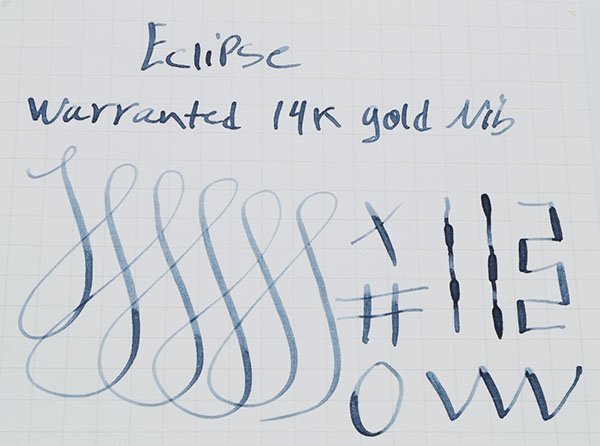 Eclipse
Warranted 14K gold Nib